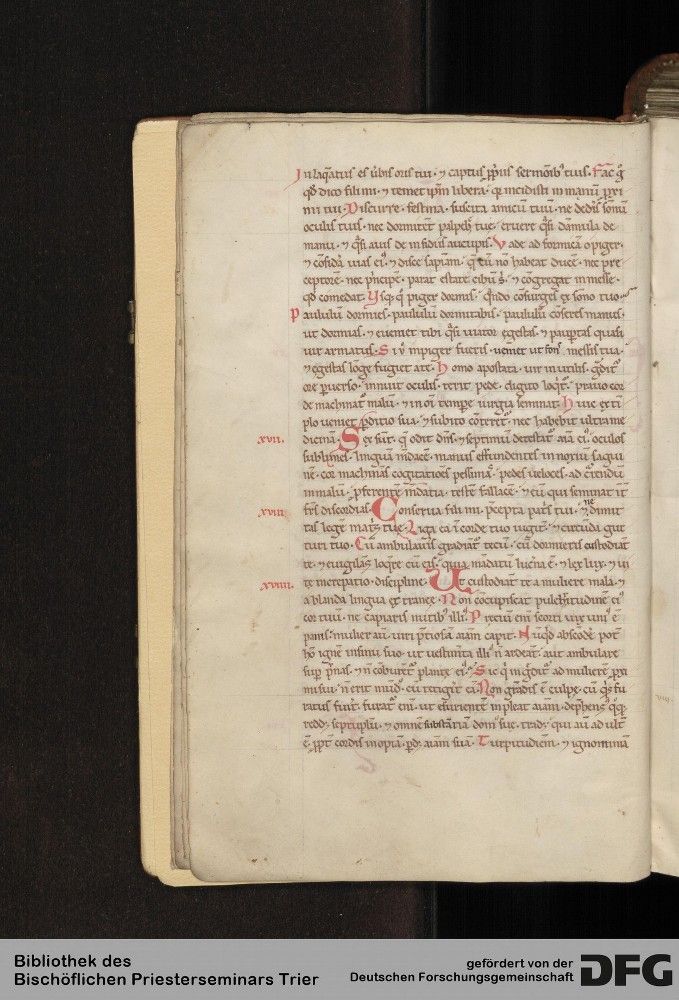 Inlaq̄atus es ūbis oris tui · ⁊ captus ꝓp̄iis sermoīb᷒ tuis. Fac ġ
qd̄ dico fili mi · ⁊ temet ip̄m libera · qꝛ incidisti in manū p̄xi
mi tui. Discurre · festina · suscita amicū tuū · ne dedis somnū
oculis tuis · nec dormitēt palpebre tue · eruere q̄si dāmula de
manu · ⁊ q̄si auis de insidiis aucupis. Vade ad formicā o piger ·
⁊ c̄sidā uias ei᷒ · ⁊ disce sapiam̄ · q̄ cū n̄ habeat ducē · nec pre
ceptorē · nec p̄ncipē · parat estate cibū s̄ · ⁊ cōgregat in messe ·
qd̄ comedat. Usq̄ q̄ piger dormis · q̄ndo cōsurges ex sōno tuo
Paululū dormies · paululū dormitabis · paululū cōseres manus ·
ut dormias · ⁊ eueniet tibi q̄si uiator egestas · ⁊ paup̄tas quasi
uir armatus. Si v̄ impiger fueris · ueniet ut fons messis tua ·
⁊ egestas lōge fugiet a te. Homo apostata · uir inutilis · gdit᷒
ore puerso · innuit oculis · terit pede · digito loqt᷒ · prauo cor
de machinat᷒ malū · ⁊ in oī tempore iurgia seminat. Huic extē
plo ueniet pditio sua · ⁊ subito cōteret᷒ · nec habebit ultra me
xvii. dicinā. Sex sūt · q̄ odit dn̄s · ⁊ septimū detestat᷒ aīa ei᷒ · oculos
sublimes · linguā mdacē · manus effundentes innoxiū sangui
nē · cor machinās cogitatōes pessimas · pedes ueloces · ad c̄rendū
in malū · pferentē mdatia · testē fallacē · ⁊ eū qui seminat īt
xviii. frēs discordias. Conserua fili mi · pcepta pats tui · ⁊ ne dimit
tas legē mats tue. Liga ea ī corde tuo iugit᷒ · ⁊ circūda gut
turi tuo. Cū ambulauis gradiat᷒ tecū · cū dormieris custodiāt
te · ⁊ euigilās loqre cū eis · quia mdatū lucna ē · ⁊ lex lux · ⁊ ui
xviiii. te increpatio · discipline. Ut custodiāt te a muliere mala · ⁊
a blanda lingua extranee. Non cōcupiscat pulchitudinē ei᷒
cor tuū · ne capiaris nutib᷒ illi᷒. Pretiū enī scorti uix uni᷒ ē
panis · mulier aū · uiri ptiosā aīam capit. Nūqd abscōde pot᷒
hō ignē in sinu suo · ut uestimta illi᷒ n̄ ardeāt · aut ambulare
sup pnas · ⁊ n̄ cōburēt᷒ plante ei᷒. Sic q̄ ingdit᷒ ad mulierē pxi
mi sui · n̄ erit mūd᷒ · cū tetigit eā. Non gndis ē culpe · cū qs fu
ratus fuit · furat᷒ enī · ut esurientē impleat aīam · dephens᷒ qq
redd · septuplū · ⁊ omnē substātiam dom᷒ sue · trad · qui aū adult
ē · ppt cordis inopiā · pd · aīam suā. Turpitudinē · ⁊ ignominiā
Bibliothek des
Bischöflichen Priesterseminars Trier
gefördert von der
Deutschen Forschungsgemeinschaft
DFG